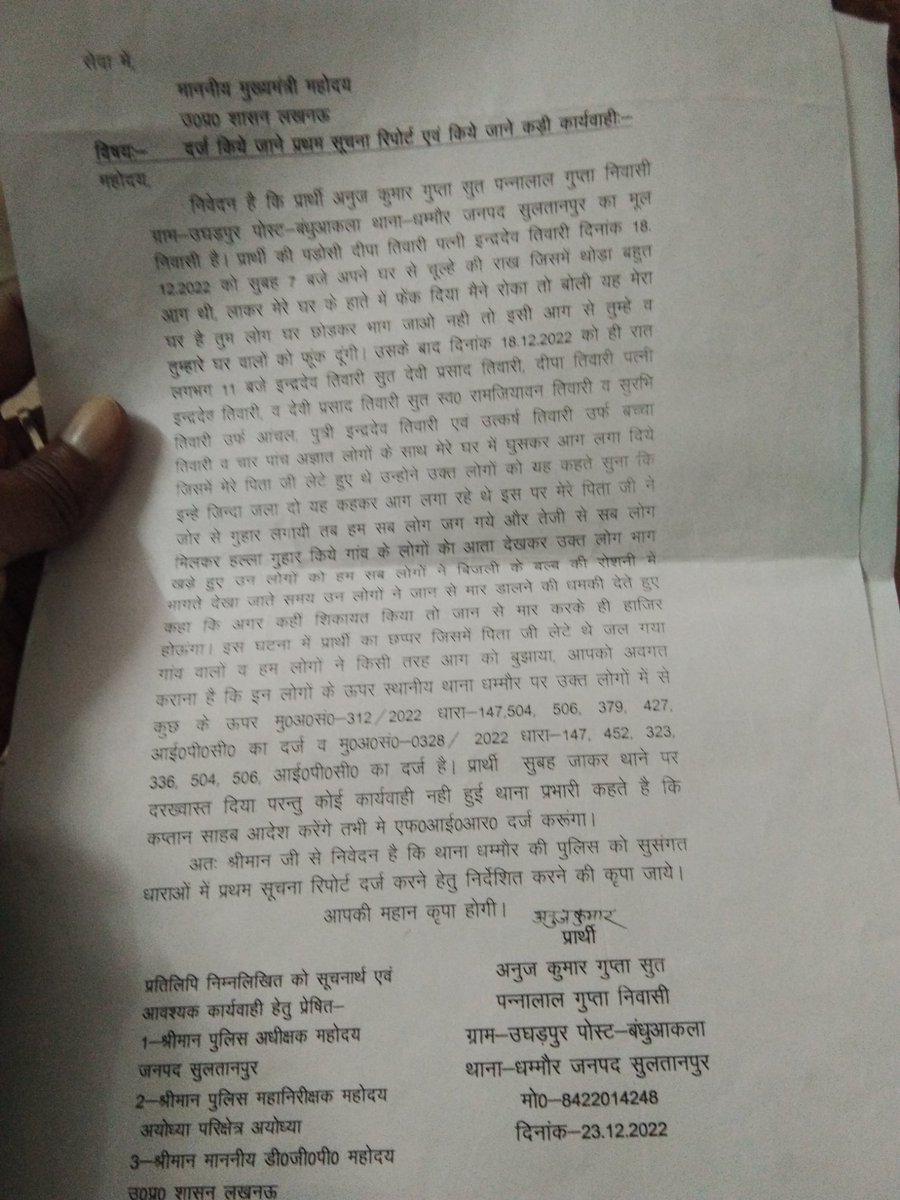 सेवा में,
माननीय मुख्यमंत्री महोदय
उ0प्र0 शासन लखनऊ
विषयः- दर्ज किये जाने प्रथम सूचना रिपोर्ट एवं किये जाने कड़ी कार्यवाहीः-
महोदय,
निवेदन है कि प्रार्थी अनुज कुमार गुप्ता सुत पन्नालाल गुप्ता निवासी
ग्राम-उघड़पुर पोस्ट-बंधुआकला थाना-धम्मौर जनपद सुलतानपुर का मूल
निवासी है। प्रार्थी की पडोसी दीपा तिवारी पत्नी इन्द्रदेव तिवारी दिनांक 18.
12.2022 को सुबह 7 बजे अपने घर से चूल्हे की राख जिसमें थोडा बहुत
आग थी, लाकर मेरे घर के हाते में फेंक दिया मैने रोका तो बोली यह मेरा
घर है तुम लोग घर छोडकर भाग जाओ नही तो इसी आग से तुम्हे व
तुम्हारे घर वालों को फूंक दूंगी। उसके बाद दिनांक 18.12.2022 को ही रात
लगभग 11 बजे इन्द्रदेव तिवारी सुत देवी प्रसाद तिवारी, दीपा तिवारी पत्नी
इन्द्रदेव तिवारी, व देवी प्रसाद तिवारी सुत स्व0 रामजियावन तिवारी व सुरभि
तिवारी उर्फ आंचल, पुत्री इन्द्रदेव तिवारी एवं उत्कर्ष तिवारी उर्फ बच्चा
तिवारी व चार पांच अज्ञात लोगों के साथ मेरे घर में घुसकर आग लगा दिये
जिसमें मेरे पिता जी लेटे हुए थे उन्होने उक्त लोगों को यह कहते सुना कि
इन्हे जिन्दा जला दो यह कहकर आग लगा रहे थे इस पर मेरे पिता जी ने
जोर से गुहार लगायी तब हम सब लोग जग गये और तेजी से सब लोग
मिलकर हल्ला गुहार किये गांव के लोगों केा आता देखकर उक्त लोग भाग
खड़े हुए उन लोगों को हम सब लोगों ने बिजली के बल्ब की रोशनी में
भागते देखा जाते समय उन लोगों ने जान से मार डालने की धमकी देते हुए
कहा कि अगर कहीं शिकायत किया तो जान से मार करके ही हाजिर
होऊंगा। इस घटना में प्रार्थी का छप्पर जिसमें पिता जी लेटे थे जल गया
गांव वालों व हम लोगों ने किसी तरह आग को बुझाया, आपको अवगत
कराना है कि इन लोगों के ऊपर स्थानीय थाना धम्मौर पर उक्त लोगों में से
कुछ के ऊपर मु0अ0सं0-312/2022 धारा-147,504, 506, 379, 427,
आई0पी0सी0 का दर्ज व मु0अ0सं0-0328/ 2022 धारा-147, 452, 323,
336, 504, 506, आई0पी0सी0 का दर्ज है। प्रार्थी सुबह जाकर थाने पर
दरख्वास्त दिया परन्तु कोई कार्यवाही नही हुई थाना प्रभारी कहते है कि
कप्तान साहब आदेश करेंगे तभी मे एफ0आई0आर0 दर्ज करूंगा।
अतः श्रीमान जी से निवेदन है कि थाना धम्मौर की पुलिस को सुसंगत
धाराओं में प्रथम सूचना रिपोर्ट दर्ज करने हेतु निर्देशित करने की कृपा जाये।
आपकी महान कृपा होगी।
अनुज कुमार
प्रार्थी
अनुज कुमार गुप्ता सुत
पन्नालाल गुप्ता निवासी
ग्राम-उघड़पुर पोस्ट-बंधुआकला
थाना-धम्मौर जनपद सुलतानपुर
मो0-8422014248
दिनांक-23.12.2022
प्रतिलिपि निम्नलिखित को सूचनार्थ एवं
आवश्यक कार्यवाही हेतु प्रेषित-
1-श्रीमान पुलिस अधीक्षक महोदय
जनपद सुलतानपुर
2-श्रीमान पुलिस महानिरीक्षक महोदय
अयोध्या परिक्षेत्र अयोध्या
3-श्रीमान माननीय डी0जी0पी0 महोदय
उ0प्र0 शासन लखनऊ